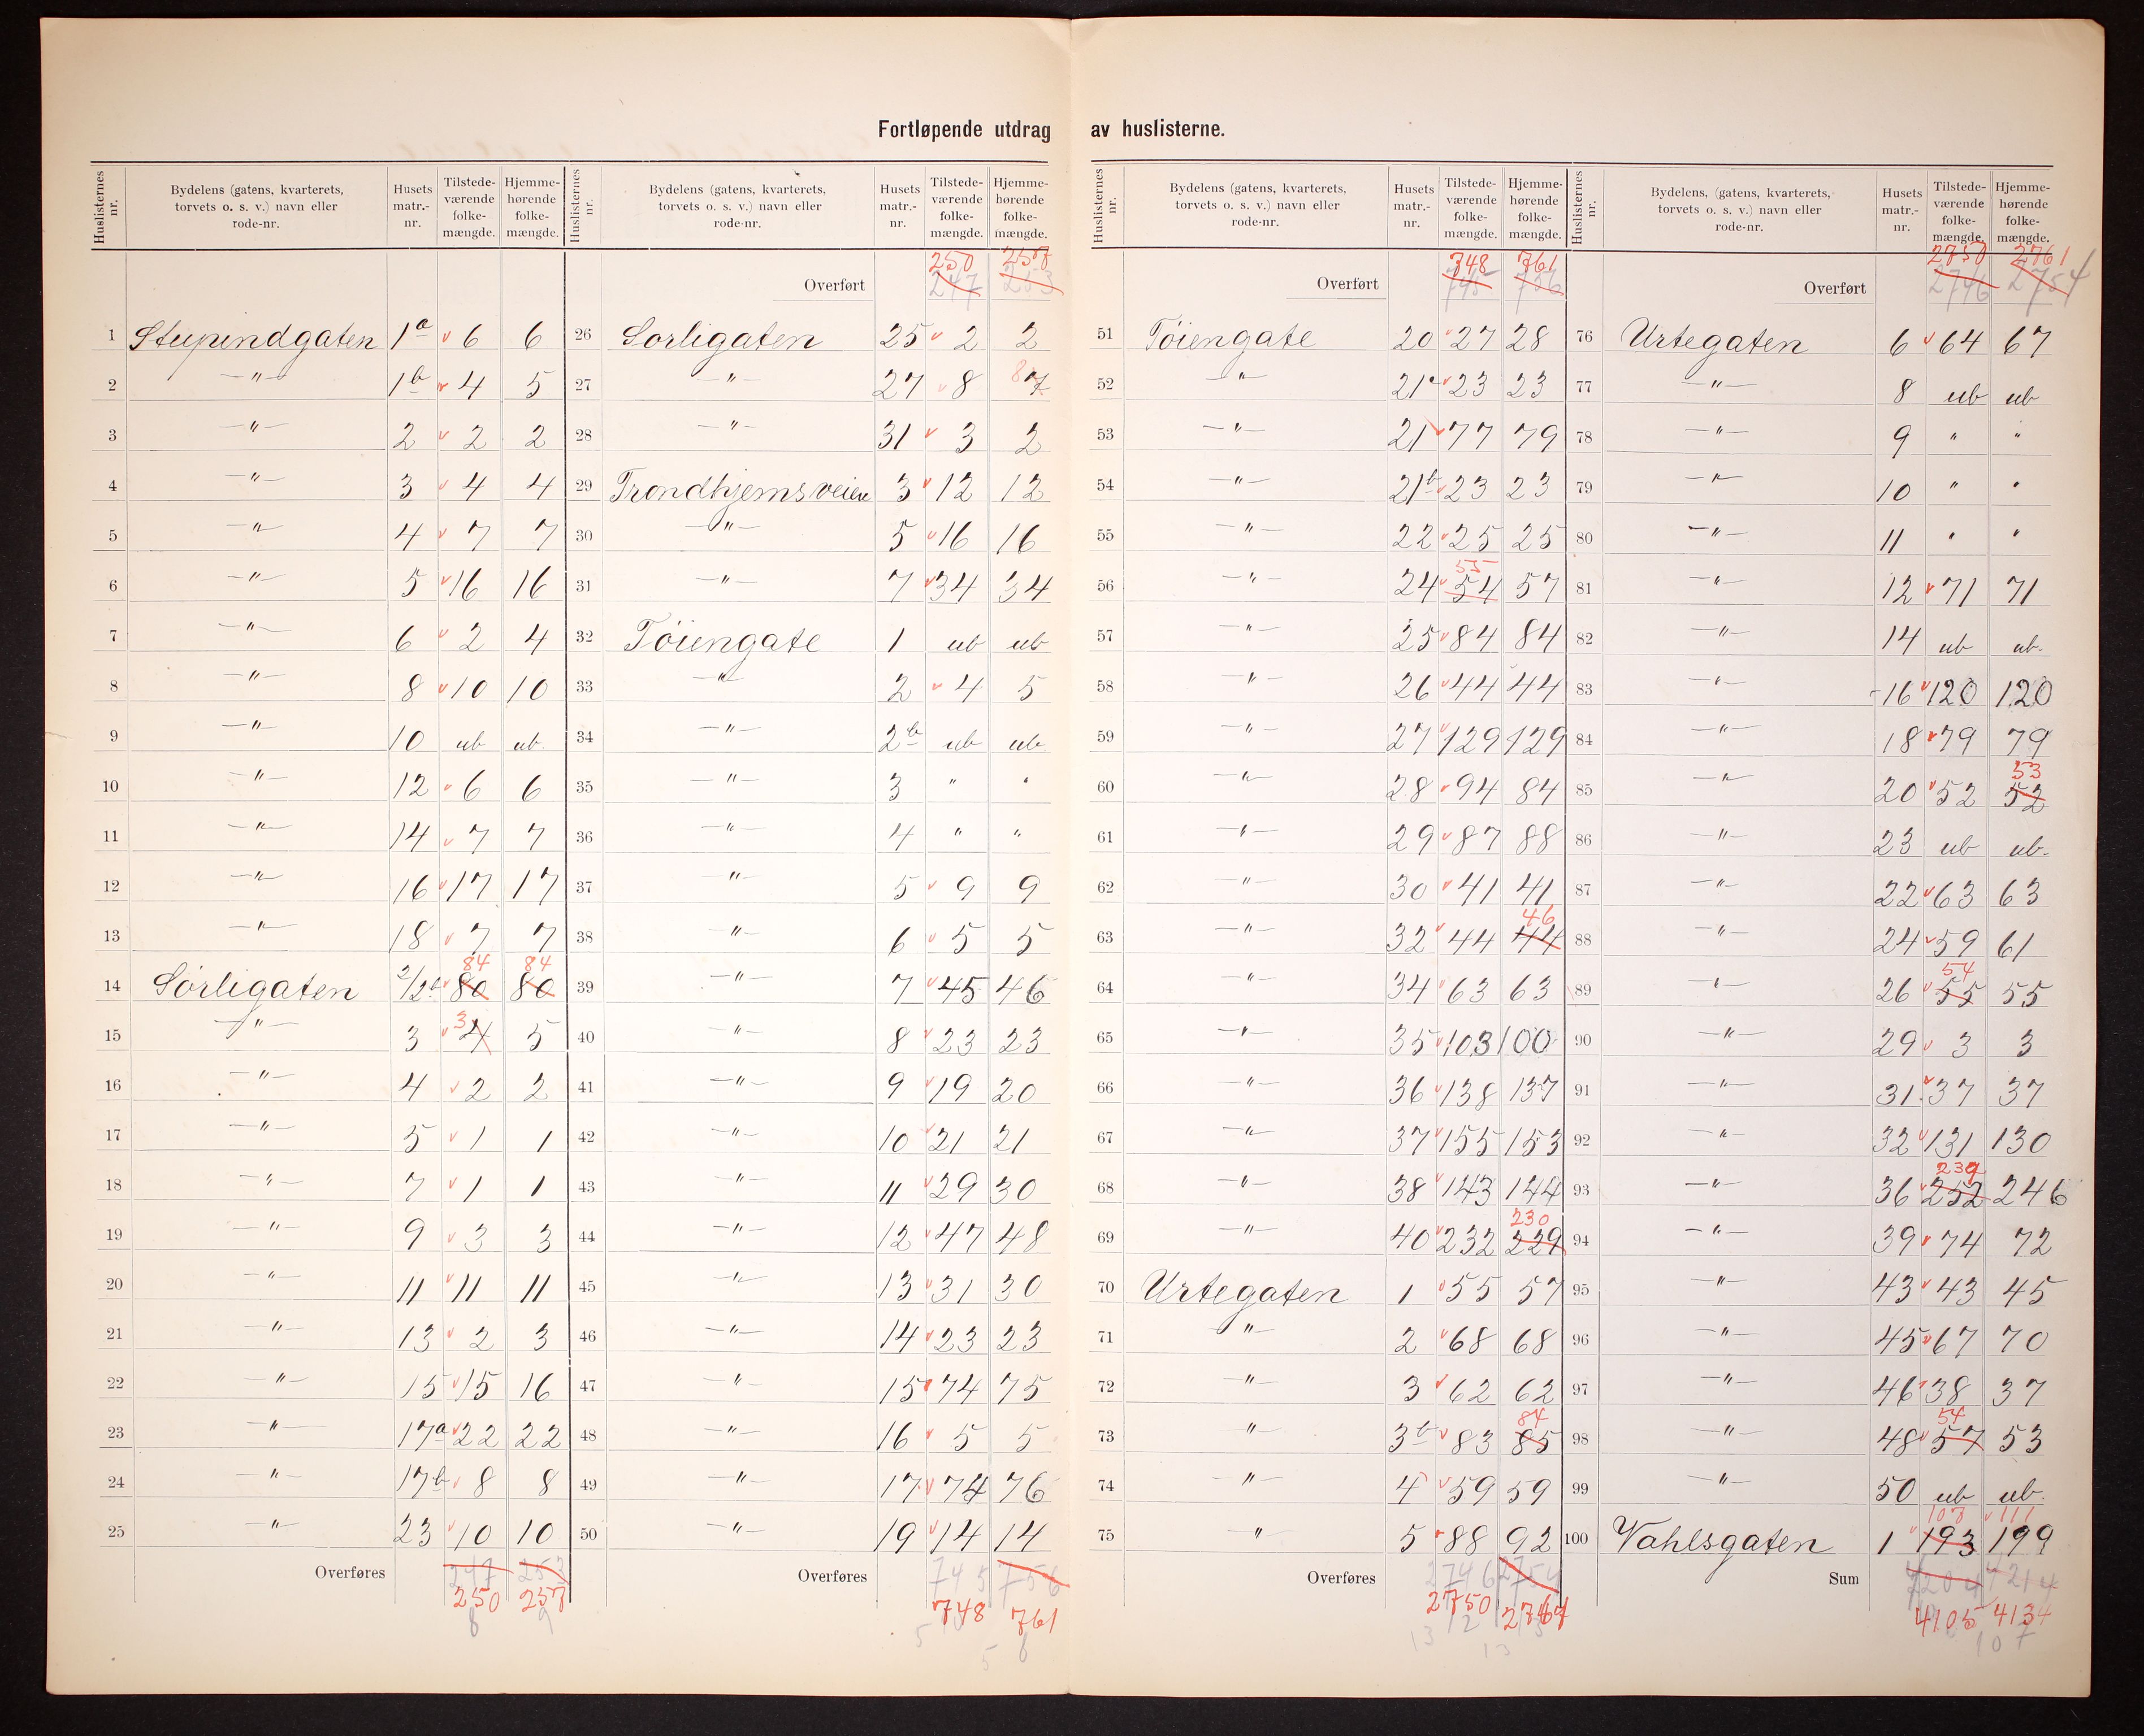 Fortløpende utdrag av huslisterne.
Huslisternes nr. | Bydelens (gatens, kvarterets, torvets o. s. v.) navn eller rode-nr. | Husets matr.-nr. | Tilstede-værende folke-mængde. | Hjemme-hørende folke-mængde.
1 Stupendgaten 1a 6 6
2 —"— 1b 4 5
3 —"— 2 2 2
4 —"— 3 4 4
5 —"— 4 7 7
6 —"— 5 16 16
7 —"— 6 2 4
8 —"— 8 10 10
9 —"— 10 ub ub
10 —"— 12 6 6
11 —"— 14 7 7
12 —"— 16 17 17
13 —"— 18 7 7
84 84
14 Sörligaten 2/2b 80 80
15 —"— 3 3 4 5
16 —"— 4 2 2
17 —"— 5 1 1
18 —"— 7 1 1
19 —"— 9 3 3
20 —"— 11 11 11
21 —"— 13 2 3
22 —"— 15 15 16
23 —"— 17a 22 22
24 —"— 17b 8 8
25 —"— 23 10 10
Overføres 247 253
250 257
Huslisternes nr. | Bydelens (gatens, kvarterets, torvets o. s. v.) navn eller rode-nr. | Husets matr.-nr. | Tilstede-værende folke-mængde. | Hjemme-hørende folke-mængde.
250 257
Overført 247 253
26 Sorligaten 25 2 2
27 —"— 27 8 8 7
28 —"— 31 3 2
29 Trondhjemsveien 3 12 12
30 —"— 5 16 16
31 —"— 7 34 34
32 Töiengate 1 ub ub
33 —"— 2 4 5
34 —"— 2b ub ub
35 —"— 3 " "
36 —"— 4 " "
37 —"— 5 9 9
38 —"— 6 5 5
39 —"— 7 45 46
40 —"— 8 23 23
41 —"— 9 19 20
42 —"— 10 21 21
43 —"— 11 29 30
44 —"— 12 47 48
45 —"— 13 31 30
46 —"— 14 23 23
47 —"— 15 74 75
48 —"— 16 5 5
49 —"— 17 74 76
50 —"— 19 14 14
Overføres 745 756
748 761
Huslisternes nr. | Bydelens (gatens, kvarterets, torvets o. s. v.) navn eller rode-nr. | Husets matr.-nr. | Tilstede-værende folke-mængde. | Hjemme-hørende folke-mængde.
748 761
Overført 745 756
51 Töiengate 20 27 28
52 —"— 21a 23 23
53 —"— 21 77 79
54 —"— 21b 23 23
55 —"— 22 25 25
55
56 —"— 24 54 57
57 —"— 25 84 84
58 —"— 26 44 44
59 —"— 27 129 129
60 —"— 28 94 84
61 —"— 29 87 88
62 —"— 30 41 41
46
63 —"— 32 44 44
64 —"— 34 63 63
65 —"— 35 103 100
66 —"— 36 138 137
67 —"— 37 155 153
68 —"— 38 143 144
230
69 —"— 40 232 229
70 Urtegaten 1 55 57
71 —"— 2 68 68
72 —"— 3 62 62
84
73 —"— 3b 83 85
74 —"— 4 59 59
75 " 5 88 92
Overføres 2746 2754
2750
Huslisternes nr. | Bydelens, (gatens, kvarterets, torvets o. s. v.) navn eller rode-nr. | Husets matr.-nr. | Tilstede-værende folke-mængde. | Hjemme-hørende folke-mængde.
2750 2761
Overført 2746 2754
76 Urtegaten 6 64 67
77 —"— 8 ub ub
78 —"— 9 " "
79 —"— 10 " "
80 —"— 11 " "
81 —"— 12 71 71
82 —"— 14 ub ub.
83 —"— 16 120 120
84 —"— 18 79 79
53
85 —"— 20 52 52
86 —"— 23 ub ub.
87 —"— 22 63 63
88 —"— 24 59 61
54
89 —"— 26 55 55
90 —"— 29 3 3
91 —"— 31 37 37
92 —"— 32 131 130
239
93 —"— 36 252 246
94 —"— 39 74 72
95 —"— 43 43 45
96 —"— 45 67 70
97 —"— 46 38 37
54
98 —"— 48 57 53
99 —"— 50 ub ub.
107 111
100 Vahlsgaten 1 193 199
Sum 4204 4214
4105 4134